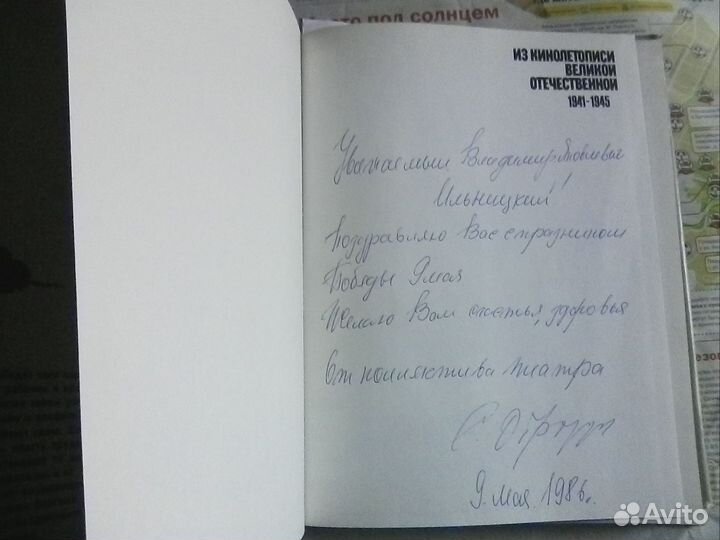 то под солнцем
ИЗ КИНОЛЕТОПИСИ
ВЕЛИКОЙ
ОТЕЧЕСТВЕННОЙ
1941-1945
Уважаемый Владимир Яковлевич
Ильницкий!
Поздравляю Вас с празником
Победы 9 мая
Желаю Вам счастья, здоровья
От коллектива театра
С.
9 мая 1986г.
Avito